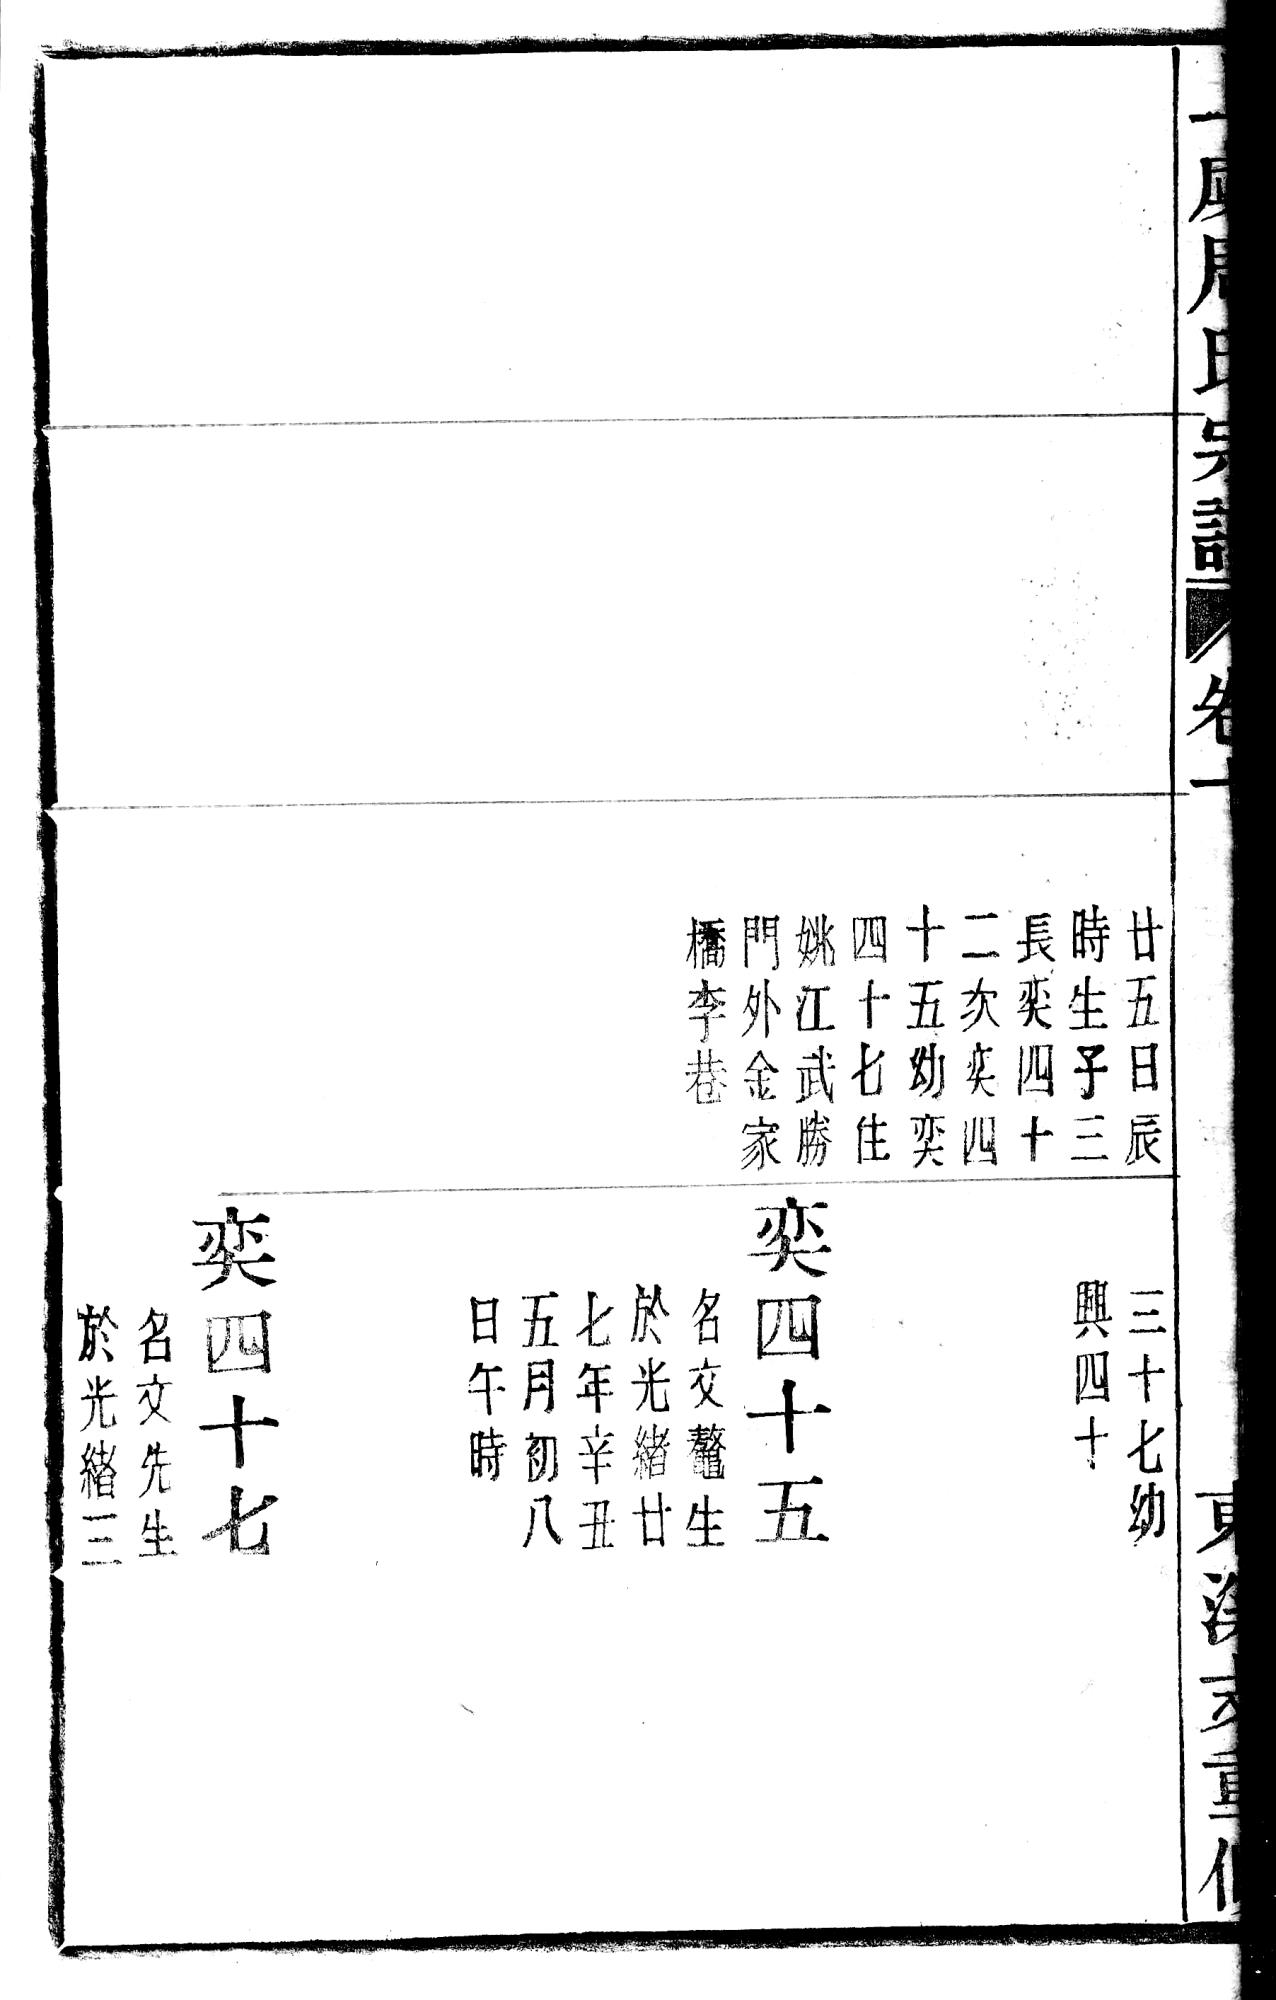 周氏宗譜 卷十
廿五日辰
時生子三
長奕四十
二次奕四
十五幼奕
四十七住
姚江武勝
門外金家
橋李巷
三十七幼
興四十
奕四十五
名文鼇生
於光緒廿
七年辛丑
五月初八
日午時
奕四十七
名文先生
於光緒三
重修